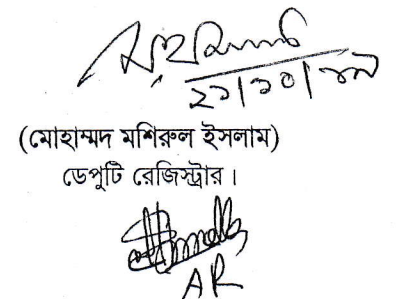 ২১/১০/
(মোহাম্মদ মশিরুল ইসলাম)
ডেপুটি রেজিস্ট্রার।
AR